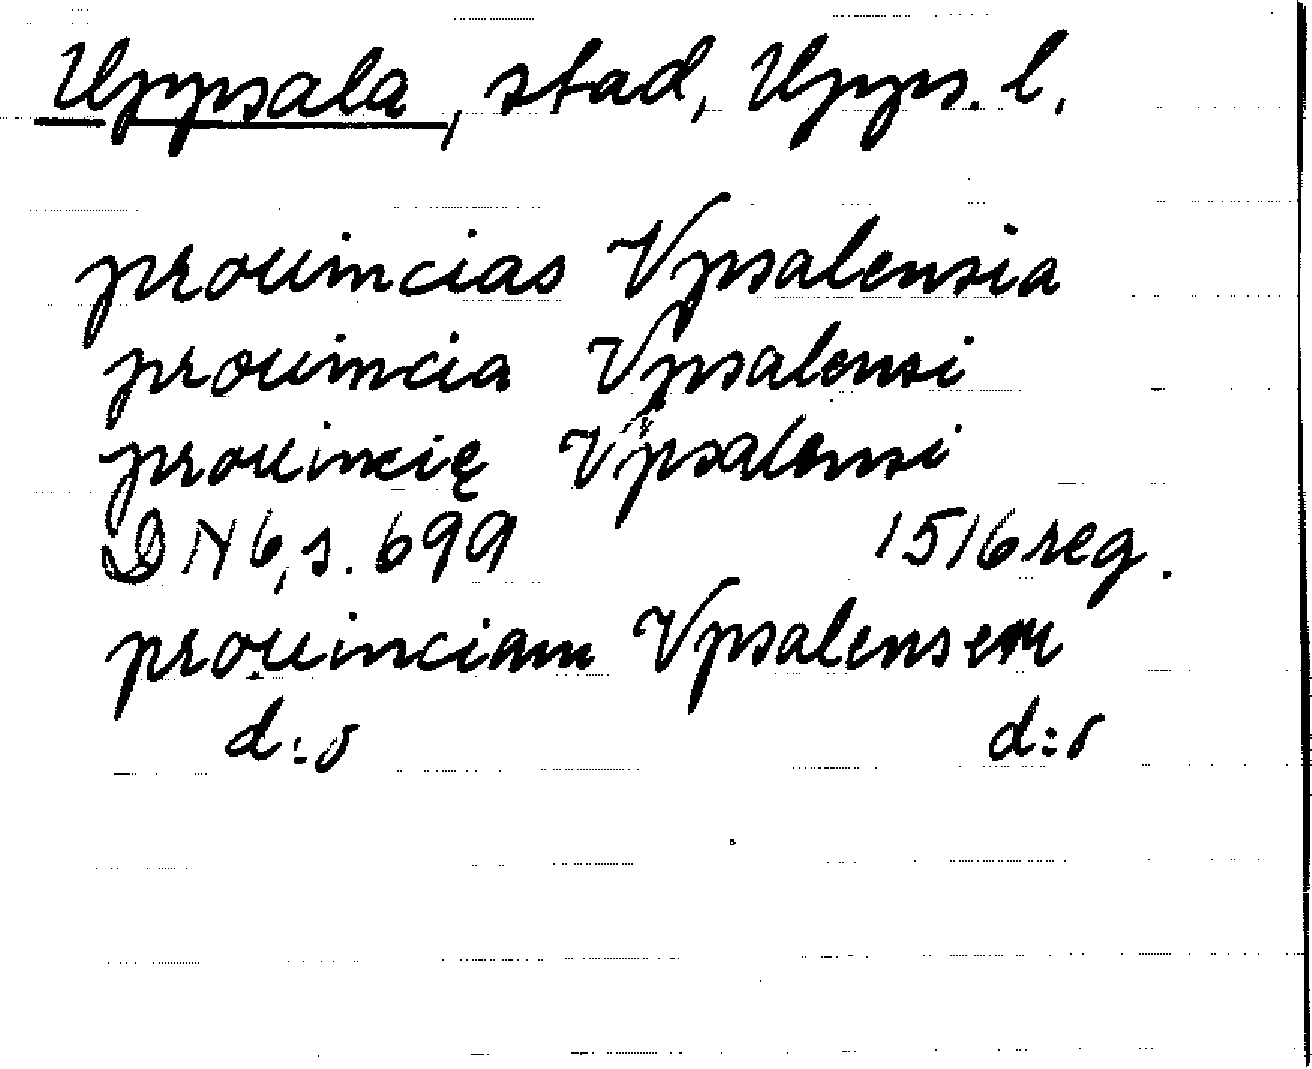 Uppsala, stad, Upps. l.
prouincias Vpsalensia
prouincia Vpsalensi
prouincię Vpsalensi
DN 6, s. 699 1516 reg.
prouinciam Vpsalensem
d:o d:o